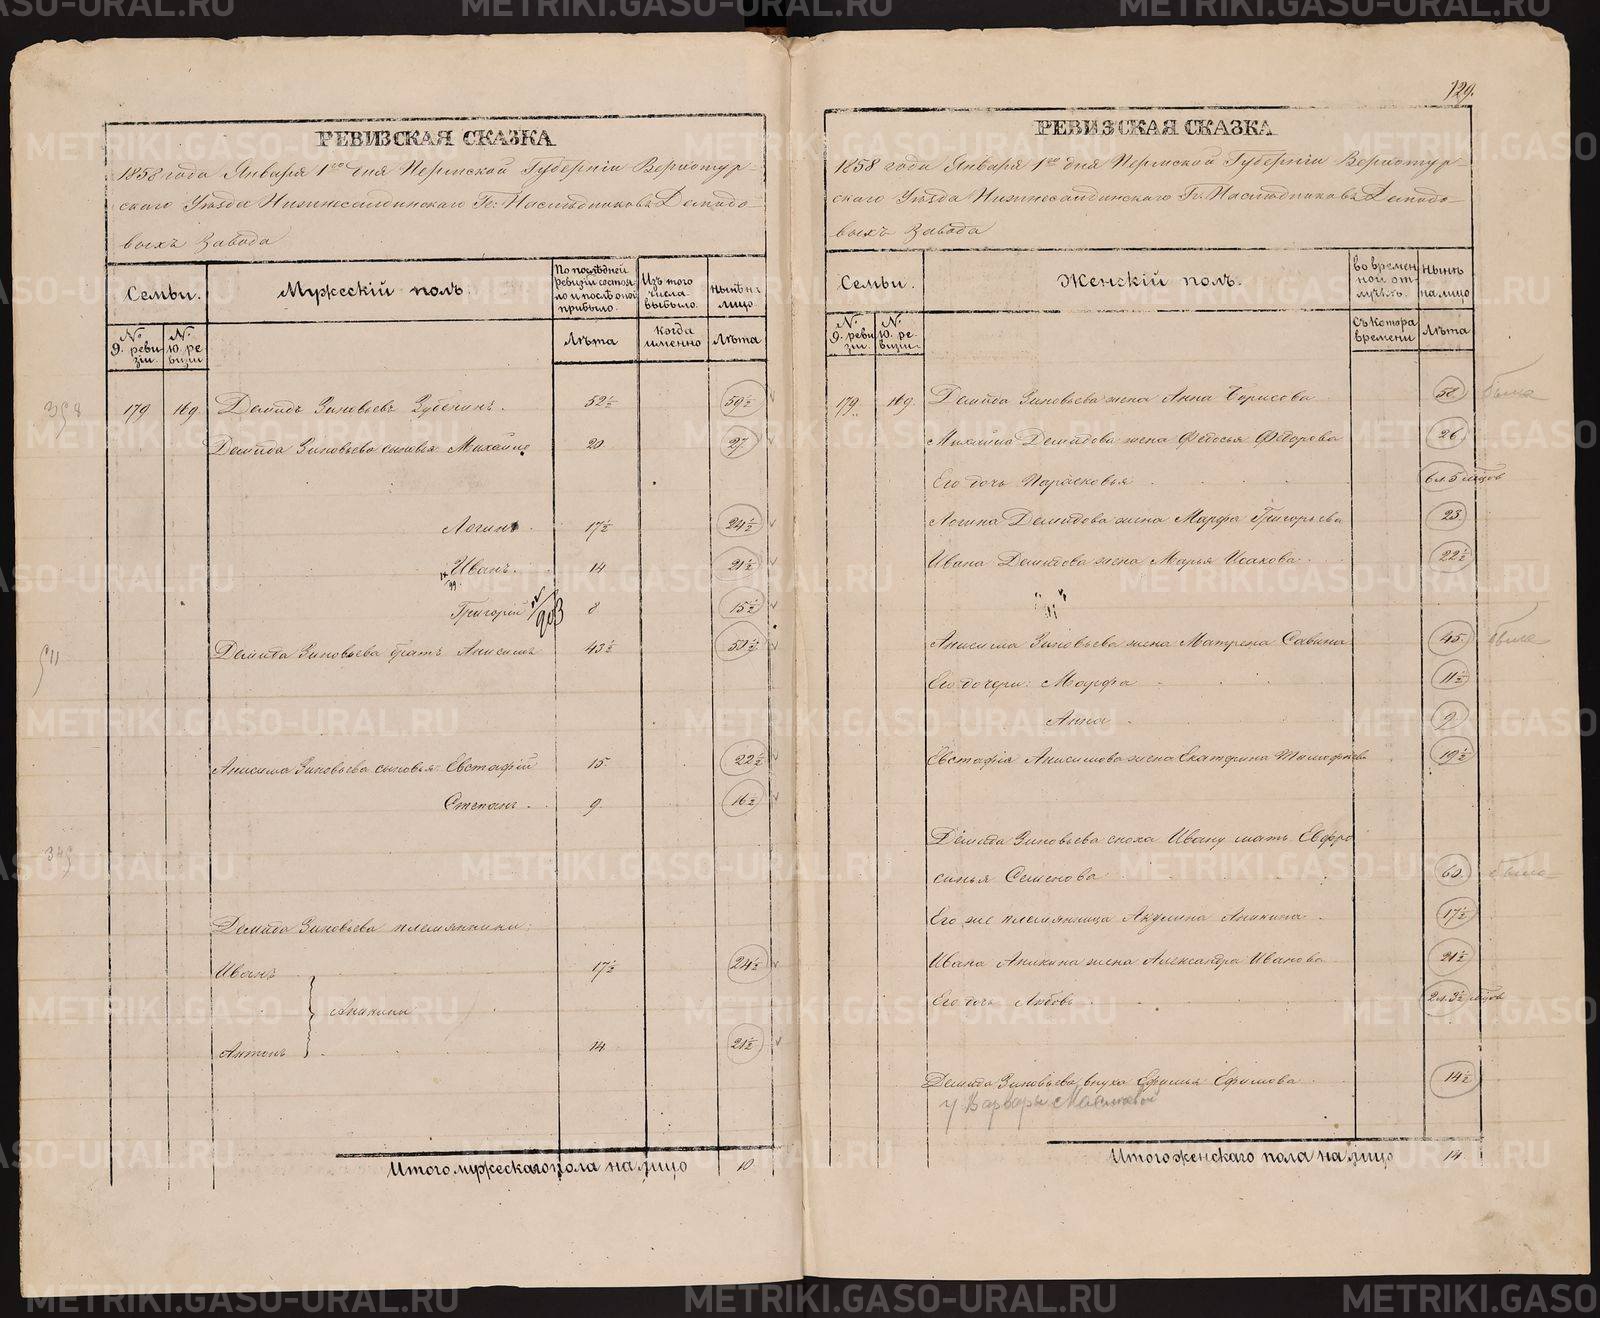 РЕВИЗСКАЯ СКАЗКА
1858 года Января 1го дня Пермской Губерніи Верхотур-
скаго Уѣзда Нижнесалдинскаго Гг: Наслѣдниковъ Демидо-
выхъ Завода
Семьи.
Мужескій полъ.
По послѣдней ревизіи состояло и послѣ оной прибыло.
Изъ того числа выбыло.
Нынѣ на лицо
№ 9. ревизіи.
№ 10. ревизіи
Лѣта
когда именно
Лѣта
179 169. Демидъ Зиновьевъ 52½ 59½
Демида Зиновьева сыновья Михайло 20 27
Логинъ 17½ 24½
Иванъ. 14 21½
Григорій 8 15½
Демида Зиновьева братъ Анисимъ 43½
Анисима Зиновьева сыновья: Евстафій 15. 22½
Степанъ 9 16½
Демида Зиновьева племянники:
Иванъ 17½ 24½
Аникины
Антонъ 14 21½
Итого мужескаго пола на лицо 10
129.
РЕВИЗСКАЯ СКАЗКА
1858 года Января 1го дня Пермской Губерніи Верхотур-
скаго Уѣзда Нижнесалдинскаго Гг. Наслѣдниковъ Демидо-
выхъ Завода
Семьи.
Женскій полъ.
Во временной отлучкѣ.
Нынѣ на лицо
№ 9. ревизіи
№ 10. ревизіи.
Съ котора времени
Лѣта
179. 169. Демида Зиновьева жена Анна Борисова 58.
Михайла Демидова жена Федосья Федорова 26
Его дочь Парасковья
Логина Демидова жена Марфа Григорьева 23
Ивана Демидова жена Марья Исакова 22½
Анисима Зиновьева жена Матрена Савина 45.
Его дочери: Марфа 11½
Анна 9.
Евстафія Анисимова жена Екатерина 19½
Демида Зиновьева сноха Ивану мать Евфро
синья Семенова 60.
Его же племянница Акулина Аникина 17½
Ивана Аникина жена Александра Иванова 21½
Его дочь Любовь
Демида Зиновьева внука Ефимья Ефимова 14½
у Варвары
Итого женскаго пола на лицо 14
METRIKI.GASO-URAL.RU